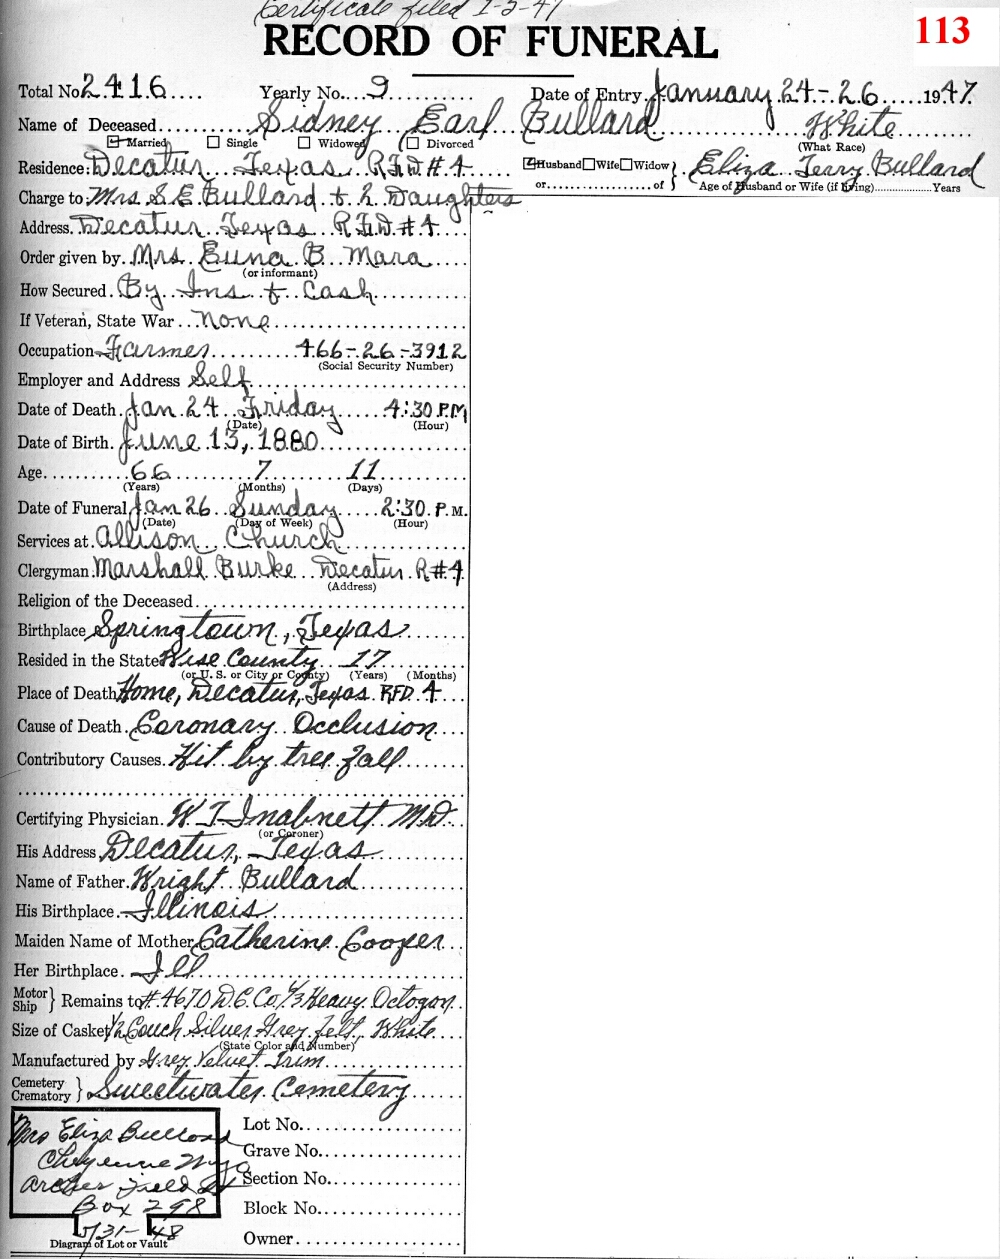 Certificate filed 1-5-47
RECORD OF FUNERAL
113
Total No 2416 Yearly No. 9 Date of Entry January 24-26 1947
Name of Deceased Sidney Earl Bullard White
(What Race)
Married Single Widowed Divorced
Residence: Decatur Texas RFD #4 Husband Wife Widow or of Eliza Terry Bullard
Age of Husband or Wife (if living) Years
Charge to: Mrs S.E. Bullard & 2 Daughters
Address. Decatur Texas RFD #4
Order given by. Mrs. Euna B. Mara
(or informant)
How Secured. By Ins & Cash
If Veteran, State War None
Occupation Farmer 466-26-3912
(Social Security Number)
Employer and Address Self
Date of Death. Jan 24 Friday 4:30 P.M
(Date) (Hour)
Date of Birth. June 13, 1880
Age 66 7 11
(Years) (Months) (Days)
Date of Funeral Jan 26 Sunday 2:30 P.M.
(Date) (Day of Week) (Hour)
Services at. Allison Church
Clergyman. Marshall Burke Decatur R#4
(Address)
Religion of the Deceased
Birthplace Springtown, Texas
Resided in the State Wise County 17
(or U. S. or City or County) (Years) (Months)
Place of Death Home, Decatur, Texas RFD. 4
Cause of Death. Coronary Occlusion
Contributory Causes. Hit by tree fall
Certifying Physician. W T Inabnett M.D.
(or Coroner)
His Address Decatur, Texas
Name of Father. Wright Bullard
His Birthplace. Illinois
Maiden Name of Mother Catherine Cooper
Her Birthplace. Ill
Motor Ship } Remains to #4670 D.C.Co. 1/3 Heavy Octogon
Size of Casket 1/2 Couch Silver Grey felt, White
(State Color and Number)
Manufactured by Grey Velvet Trim
Cemetery Crematory } Sweetwater Cemetery
Mrs Eliza Bullard
Cheyenne Wyo
Archer Field St
Box 298
5/31-48
Diagram of Lot or Vault
Lot No.
Grave No.
Section No.
Block No.
Owner